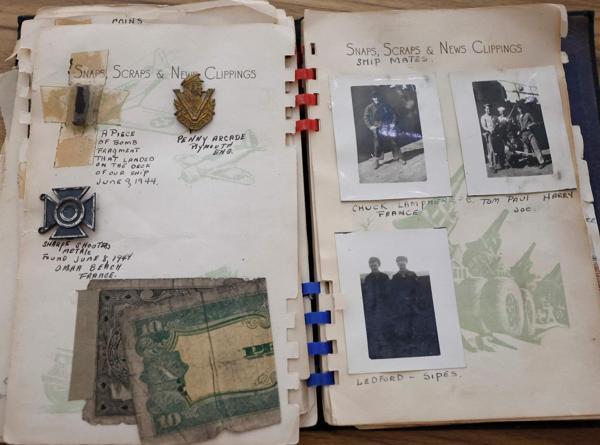 COINS
SNAPS, SCRAPS & NEWS CLIPPINGS
A PIECE
OF BOMB
FRAGMENT
THAT LANDED
ON THE DECK
OF OUR SHIP
JUNE 9, 1944.
PENNY ARCADE
PLYMOUTH
ENG.
SHARPE SHOOTERS
METALE
FOUND JUNE 8, 1944
OMHA BEACH
FRANCE.
10
10
SNAPS, SCRAPS & NEWS CLIPPINGS
SHIP MATES.
FRANCE
TOM PAUL HARRY
JOE.
LEDFORD - SIPES.